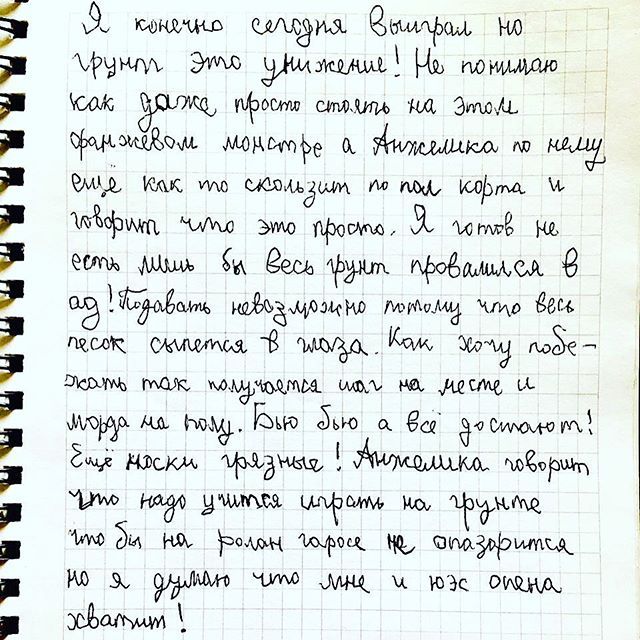 Я конечно сегодня выиграл но
грунт это унижение! Не понимаю
как даже просто стоять на этом
оранжевом монстре а Анжелика по нему
ещё как то скользит по пол корта и
говорит что это просто. Я готов не
есть лишь бы весь грунт провалился в
ад! Подавать невозможно потому что весь
песок сыпется в глаза. Как хочу побе-
жать так получается шаг на месте и
морда на полу. Бью бью а всё достают!
Ещё носки грязные! Анжелика говорит
что надо учится играть на грунте
что бы на ролан гаросе не опазорится
но я думаю что мне и юэс опена
хватит!